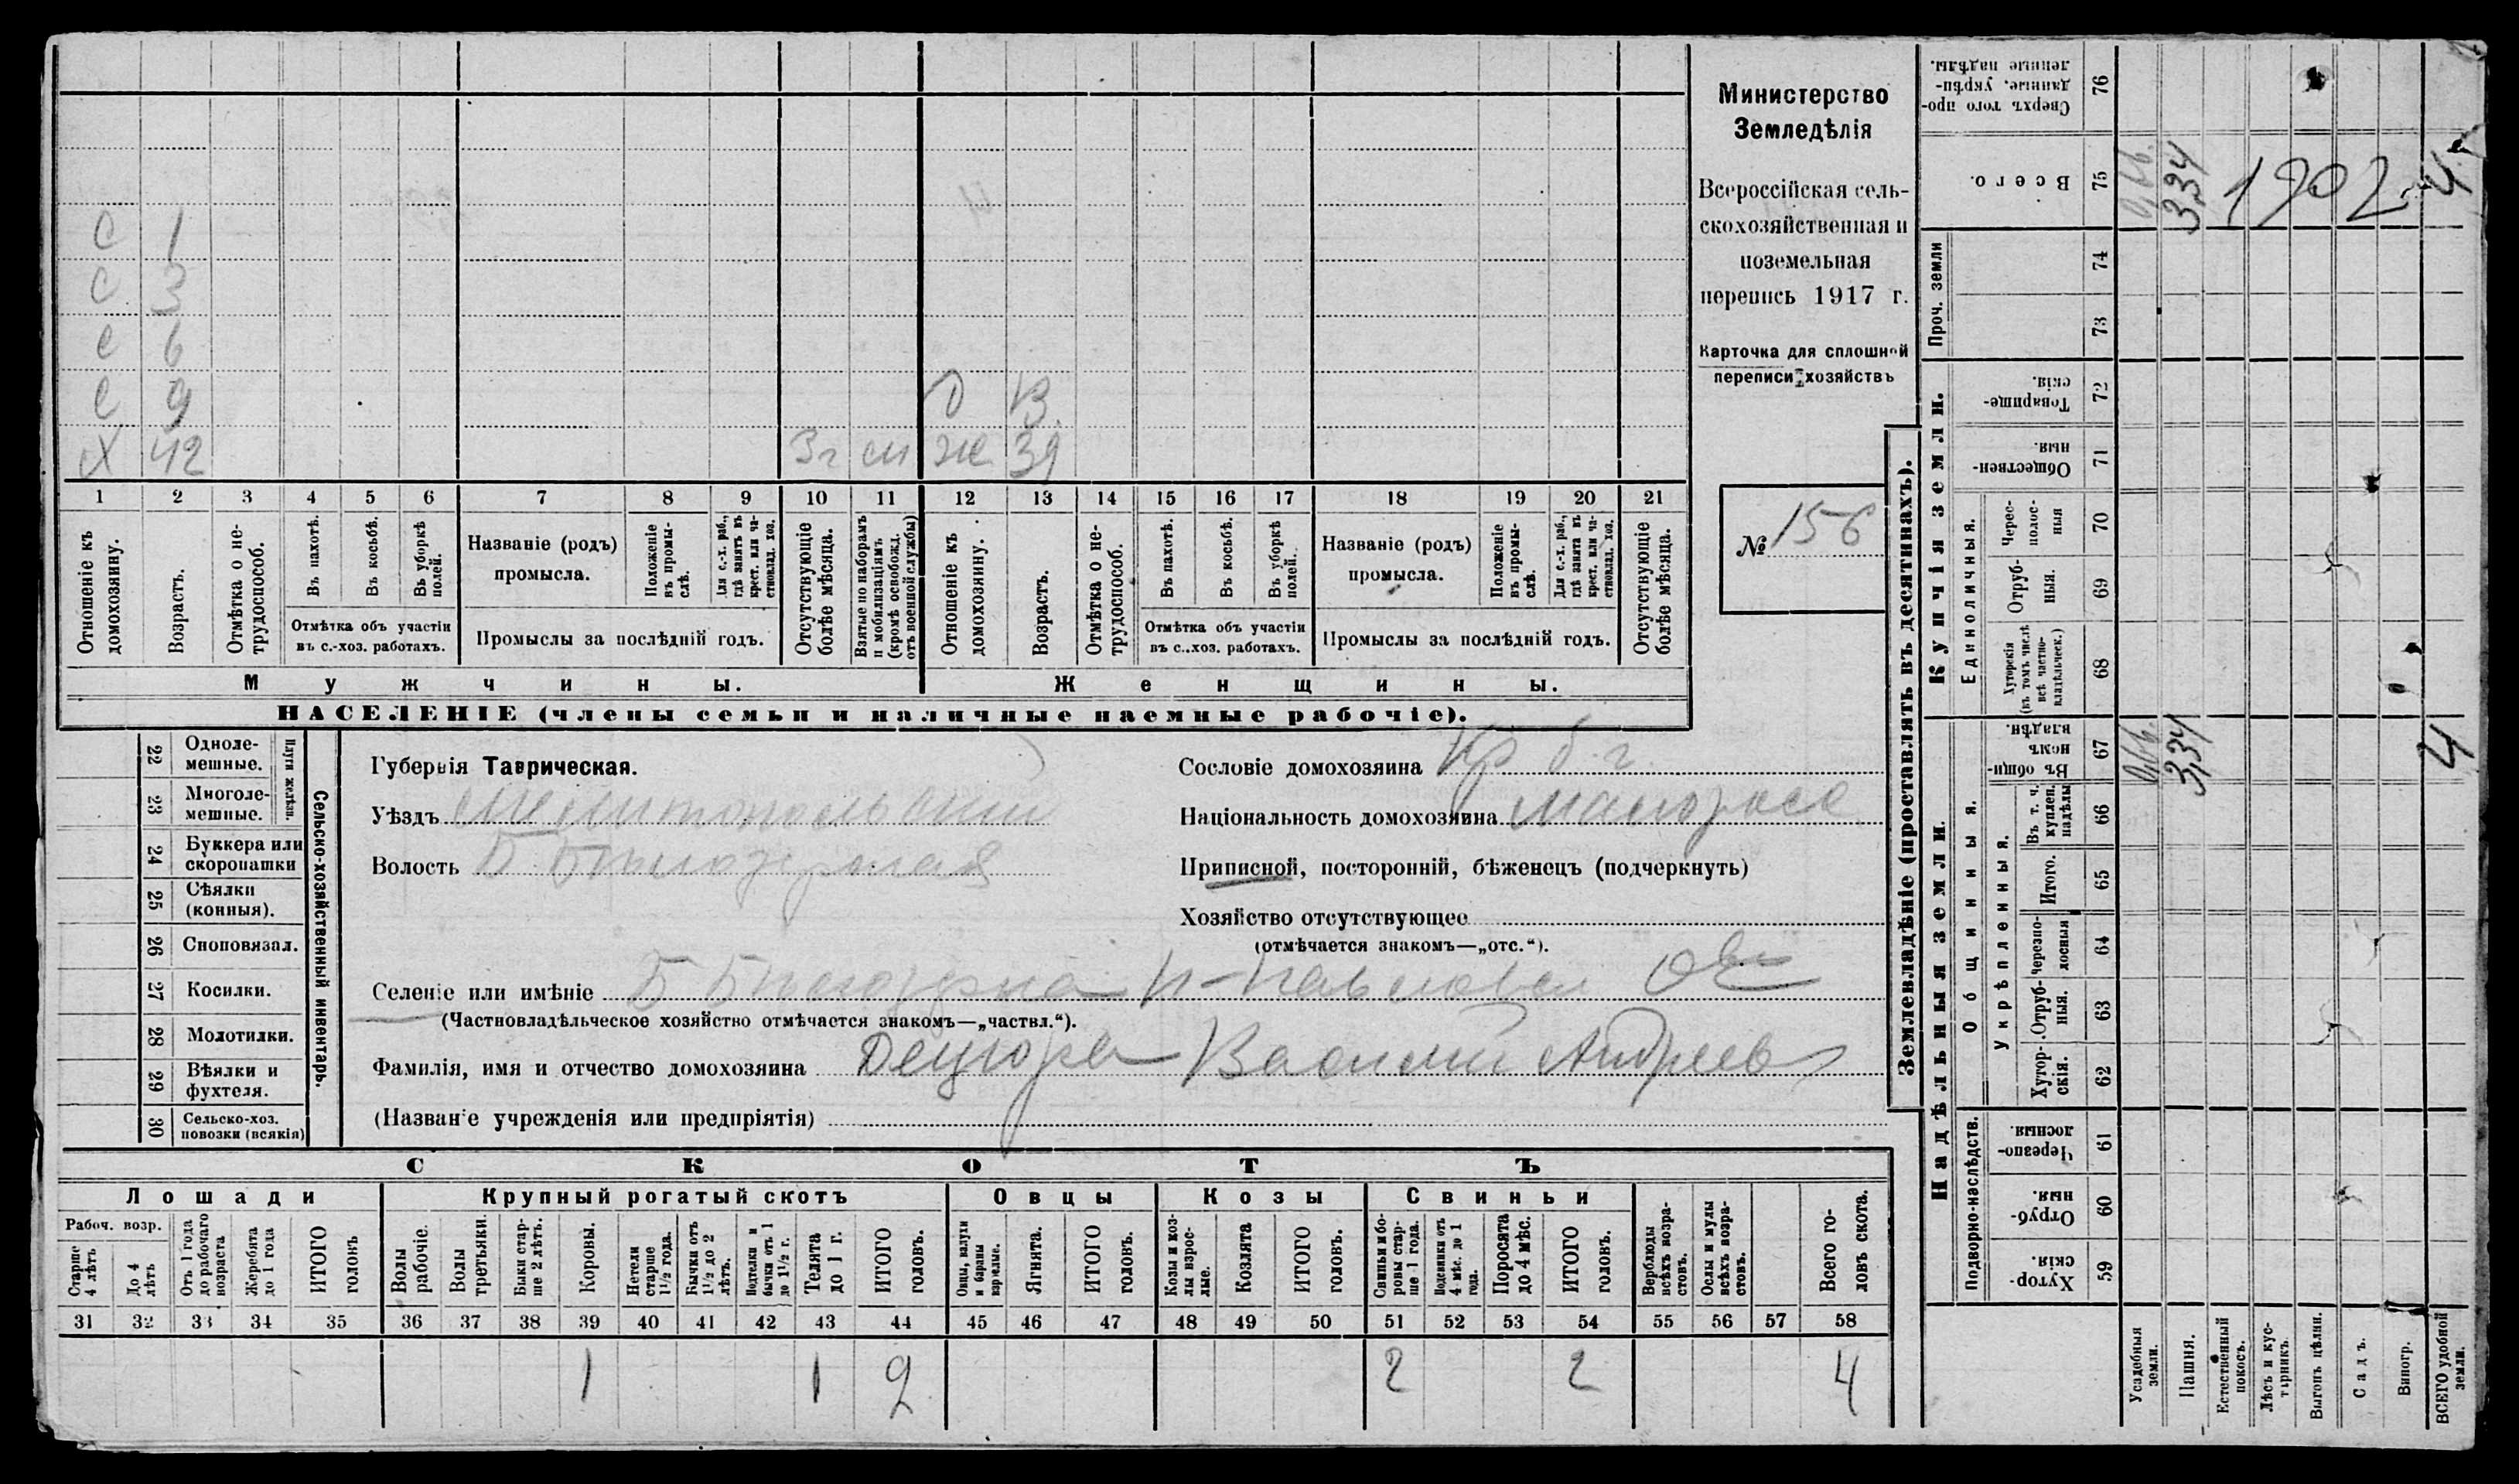 С 1
С 3
С 6
С 9 Д В.
Х 42 3 г см Же 39
1 2 3 4 5 6 7 8 9 10 11 12 13 14 15 16 17 18 19 20 21
Отношеніе къ домохозяину.
Возрастъ.
Отмѣтка о нетрудоспособ.
Въ пахотѣ.
Въ косьбѣ.
Въ уборкѣ полей.
Отмѣтка объ участіи
въ с.-хоз. работахъ.
Названіе (родъ)
промысла.
Положеніе въ промыслѣ.
Для с.-х. раб., гдѣ занятъ въ крест. или частновлад. хоз.
Промыслы за послѣдній годъ.
Отсутствующіе болѣе мѣсяца.
Взятые по наборамъ и мобилизаціямъ (кромѣ освобожд. отъ военной службы)
Отношеніе къ домохозяину.
Возрастъ.
Отмѣтка о нетрудоспособ.
Въ пахотѣ.
Въ косьбѣ.
Въ уборкѣ полей.
Отмѣтка объ участіи
въ с..хоз. работахъ.
Названіе (родъ)
промысла.
Положеніе въ промыслѣ.
Для с.-х. раб., гдѣ занята въ крест. или частновлад. хоз.
Промыслы за послѣдній годъ.
Отсутствующіе болѣе мѣсяца.
Мужчины. Женщины.
НАСЕЛЕНІЕ (члены семьи и наличные наемные рабочіе).
Министерство
Земледѣлія
Всероссійская сель-
скохозяйственная и
поземельная
перепись 1917 г.
Карточка для сплошной
переписи хозяйствъ
№ 156
22 Одноле-
мешные.
23 Многоле-
мешные.
Плуги желѣзн.
24 Буккера или
скоропашки
25 Сѣялки
(конныя).
26 Сноповязал.
27 Косилки.
28 Молотилки.
29 Вѣялки и
фухтеля.
30 Сельско-хоз.
повозки (всякія)
Сельско-хозяйственный инвентарь.
Губернія Таврическая.
Уѣздъ Мелитопольскій
Волость Б Бѣлозерская
Сословіе домохозяина Кр б. г.
Національность домохозяина малоросс
Приписной, посторонній, бѣженецъ (подчеркнуть)
Хозяйство отсутствующее
(отмѣчается знакомъ—„отс.“).
Селеніе или имѣніе Б Бѣлозерка
(Частновладѣльческое хозяйство отмѣчается знакомъ—„частвл.“).
Фамилія, имя и отчество домохозяина Децюра Василий Андреев
(Названіе учрежденія или предпріятія)
СКОТЪ
Лошади Крупный рогатый скотъ Овцы Козы Свиньи
Рабоч. возр.
Старше 4 лѣтъ
До 4 лѣтъ
Отъ 1 года до рабочаго возраста
Жеребята до 1 года
ИТОГО головъ
Волы рабочіе.
Волы третьяки.
Быки старше 2 лѣтъ.
Коровы.
Нетели старше 1½ года.
Бычки отъ 1½ до 2 лѣтъ.
Подтелки и бычки отъ 1 до 1½ г.
Телята до 1 г.
ИТОГО головъ.
Овцы, валухи и бараны взрослые.
Ягнята.
ИТОГО головъ.
Козы и козлы взрослые.
Козлята
ИТОГО головъ.
Свиньи и боровы старше 1 года.
Подсвинки отъ 4 мѣс. до 1 года.
Поросята до 4 мѣс.
ИТОГО головъ.
Верблюды всѣхъ возрастовъ.
Ослы и мулы всѣхъ возрастовъ.
Всего головъ скота.
31 32 33 34 35 36 37 38 39 40 41 42 43 44 45 46 47 48 49 50 51 52 53 54 55 56 57 58
1 1 2 2 2 4
Землевладѣніе (проставлять въ десятинахъ).
Надѣльныя земли. Купчія земли.
Подворно-наслѣдств.
Общинныя.
Укрѣпленныя.
Единоличныя.
Проч. земли
Сверхъ того проданные, укрѣпленные надѣлы. 76
Всего. 75 3,34 1902 4
74
73
Товарищескія. 72
Общественныя. 71
Черес-полос-ныя 70
Отруб-ныя. 69
Хуторскія (въ томъ числѣ всѣ частно-владѣльческ.) 68
Въ общинномъ владѣн. 67 3,34 4
Въ т. ч. куплен. надѣлы 66
Итого. 65
Черезпо-лосныя 64
Отруб-ныя. 63
Хутор-скія. 62
Черезпо-лосныя. 61
Отруб-ныя. 60
Хутор-скія. 59
Усадебныя земли.
Пашня.
Естественный покосъ.
Лѣсъ и кустарникъ.
Выгонъ цѣлин.
Садъ.
Виногр.
ВСЕГО удобной земли.